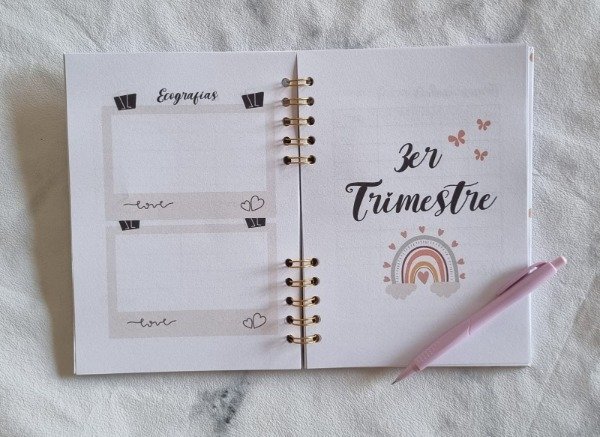 Ecografias
love
love
3er
Trimestre